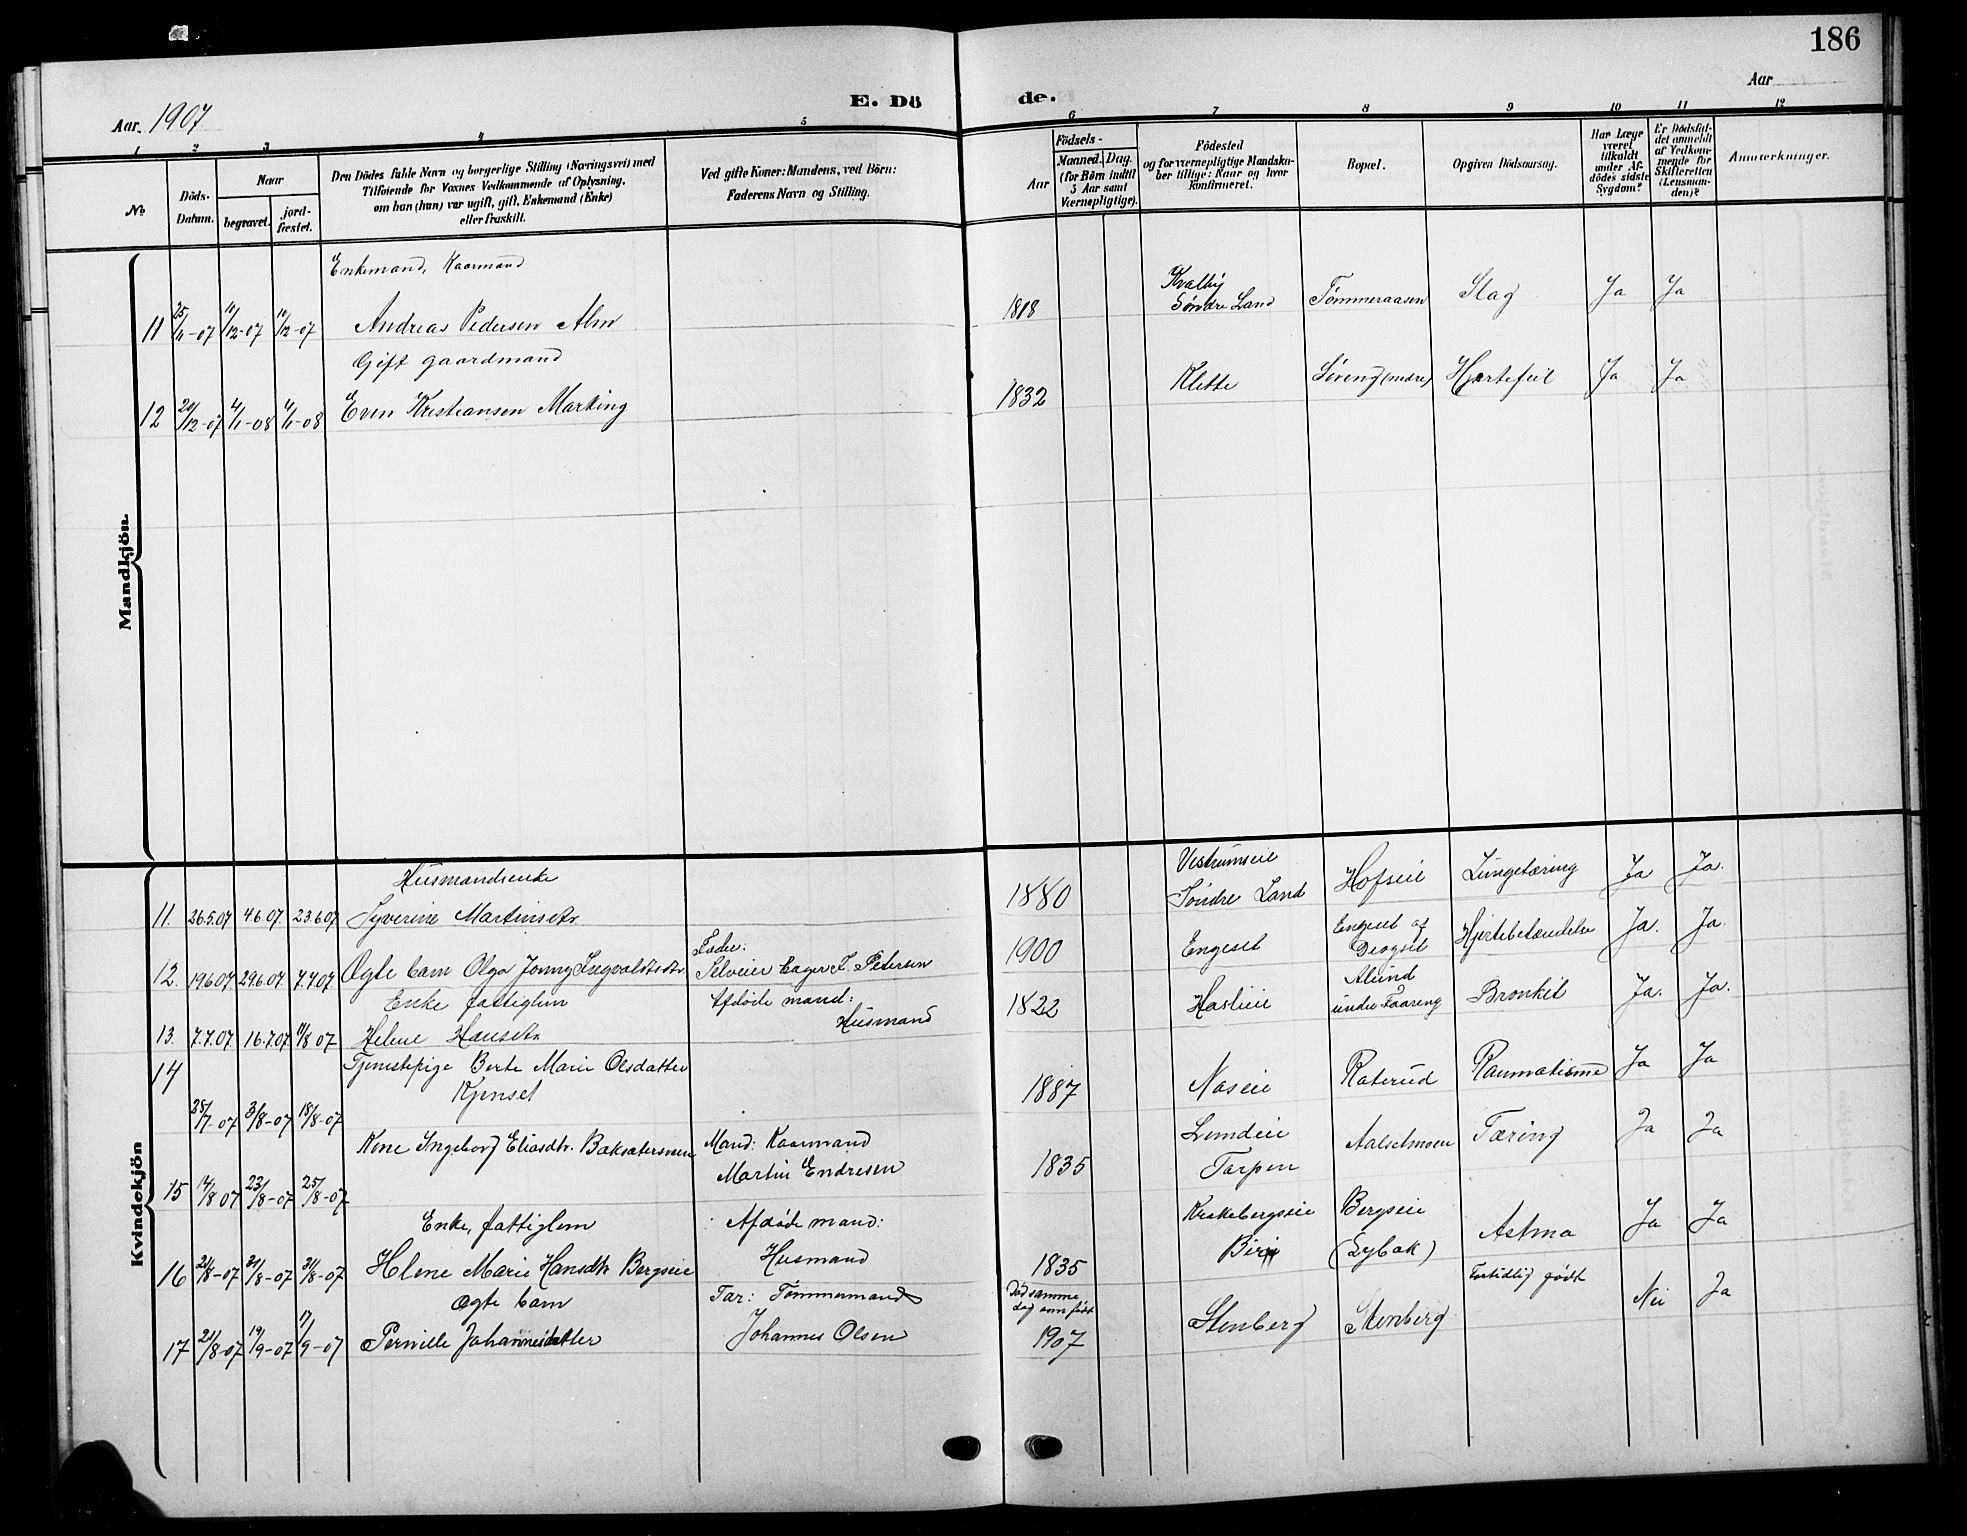 186
Aar. 1907
E. Dö de.
Aar
1 2 3 4 5 6 7 8 9 10 11 12
No
Döds-
Datum.
Naar
begravet.
jord-
fæstet.
Den Dödes fulde Navn og borgerlige Stilling (Næringsvei) med
Tilföiende for Voxnes Vedkommende af Oplysning,
om han (hun) var ugift, gift, Enkemand (Enke)
eller fraskilt.
Ved gifte Koner: Mandens, ved Börn:
Faderens Navn og Stilling.
Födsels-
Aar
Maaned. Dag.
(for Börn indtil
5 Aar samt
Værnepligtige).
Födested
og for værnepligtige Mandska-
ber tillige: Naar og hvor
konfirmeret.
Bopæl.
Opgiven Dödsaarsag.
Har Læge
været
tilkaldt
under Af-
dödes sidste
Sygdom?
Er Dödsfal-
det anmeldt
af Vedkom-
mende for
Skifteretten
(Lensman-
den)?
Anmærkninger.
Mandkjön.
Enkemand, Kaarmand
11 25/11-07 11/12-07 11/12-07 Andreas Pedersen Alm 1818 Kvalby Söndre Land Tømmeraasen Slag Ja Ja
Gift gaardmand
12 20/12-07 4/1-08 4/1-08 Even Kristiansen Marking 1832 Klette Søreng (nedre) Hjertefeil Ja Ja
Kvindekjön
Husmandsenke
11. 26.5.07 4.6.07. 23.6.07 Syverine Martinsdtr. 1880 Vestrumseie Söndre Land Hofseie Lungetæring Ja Ja.
12. 19.6.07 29.6.07. 7.7.07 Ægte barn Olga Jonny Ingvaldsdtr. Fader: Selveier Ingv. Petersen 1900 Engeset Engeset af Hjertebetændelse Ja. Ja.
Enke fattiglem Afdøde mand:
Husmand
13. 7.7.07 16.7.07 11/8 07 Helene Hansdtr. 1822 Haslieie Alund under Faaring Bronkit Ja. Ja.
14 Tjenestepige Berte Marie Olsdatter
Kjenset
28/7-07 3/8-07 18/8-07 1887 Naseie Raterud Raumatisme Ja Ja
Kone Ingeborg Eliasdtr. Baksætersveen Mand: Kaarmand
Martin Endresen
15 14/8 07 23/8-07 25/8-07 1835 Lundeie Torpen Aalsetmoen Tæring Ja Ja
Enke, fattiglem Afdøde mand:
16 21/8-07 31/8-07 31/8-07 Helene Marie Hansdtr Bergseie Husmand 1835 Krekebergseie Biri Bergseie (Lybæk) Astma Ja Ja
Ægte barn Far: Tömmermand
17 21/8-07 19/9-07 17/9-07 Pernille Johannesdatter Johannes Olsen Død samme dag som født 1907 Stenberg Stenberg Fortidlig født Nei Ja